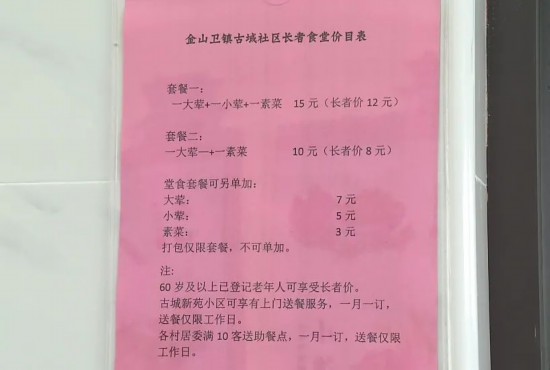 金山卫镇古城社区长者食堂价目表
套餐一：
一大荤+一小荤+一素菜 15 元（长者价 12 元）
套餐二：
一大荤一+一素菜 10 元（长者价 8 元）
堂食套餐可另单加：
大荤： 7 元
小荤： 5 元
素菜： 3 元
打包仅限套餐，不可单加。
注:
60 岁及以上已登记老年人可享受长者价。
古城新苑小区可享有上门送餐服务，一月一订，
送餐仅限工作日。
各村居委满 10 客送助餐点，一月一订，送餐仅限
工作日。